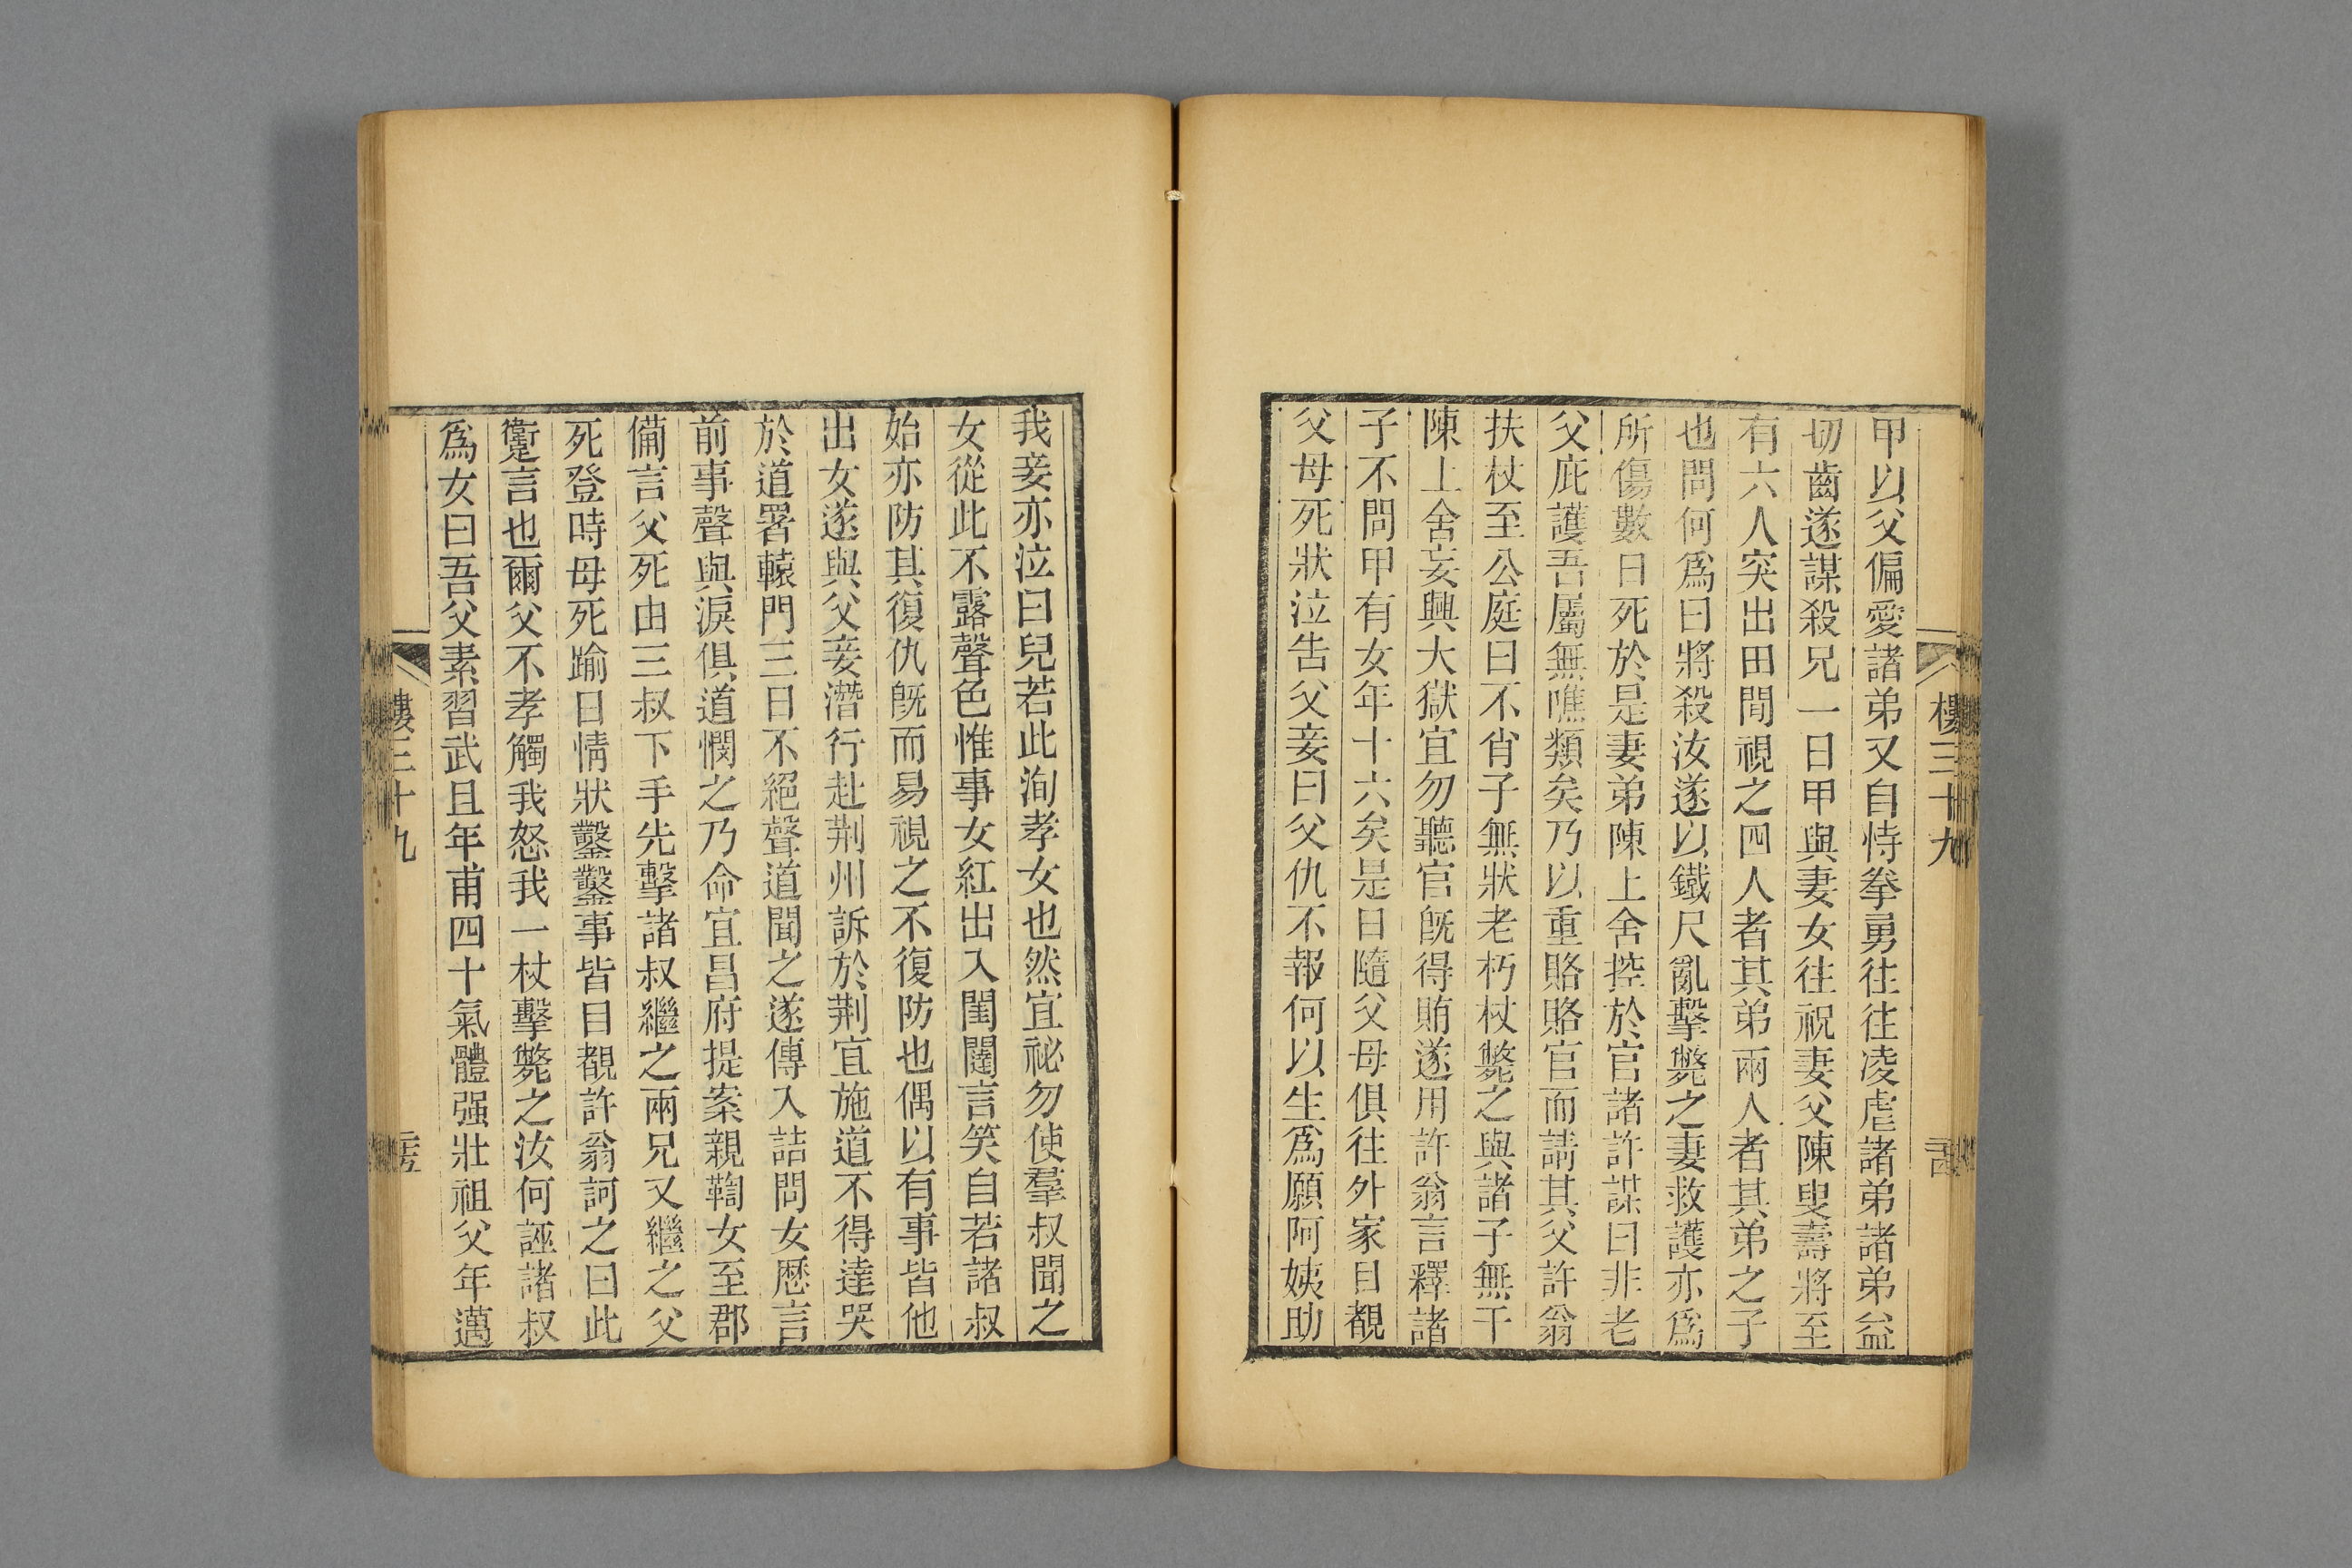 甲以父偏愛諸弟又自恃拳勇往往凌虐諸弟諸弟益
切齒遂謀殺兄一日甲與妻女往祝妻父陳叟壽將至
有六人突出田間視之四人者其弟兩人者其弟之子
也問何爲曰將殺汝遂以鐵尺亂擊斃之妻救護亦爲
所傷數日死於是妻弟陳上舍控於官諸許謀曰非老
父庇護吾屬無噍類矣乃以重賂賂官而請其父許翁
扶杖至公庭曰不肖子無狀老朽杖斃之與諸子無干
陳上舍妄興大獄宜勿聽官旣得賄遂用許翁言釋諸
子不問甲有女年十六矣是日隨父母俱往外家目覩
父母死狀泣告父妾曰父仇不報何以生爲願阿姨助
樓三十九
我妾亦泣曰兒若此洵孝女也然宜祕勿使羣叔聞之
女從此不露聲色惟事女紅出入閨闥言笑自若諸叔
始亦防其復仇旣而易視之不復防也偶以有事皆他
出女遂與父妾潛行赴荆州訴於荆宜施道不得達哭
於道署轅門三日不絕聲道聞之遂傳入詰問女歷言
前事聲與淚俱道憫之乃命宜昌府提案親鞫女至郡
備言父死由三叔下手先擊諸叔繼之兩兄又繼之父
死登時母死踰日情狀鑿鑿事皆目覩許翁訶之曰此
躗言也爾父不孝觸我怒我一杖擊斃之汝何誣諸叔
爲女曰吾父素習武且年甫四十氣體强壯祖父年邁
樓三十九